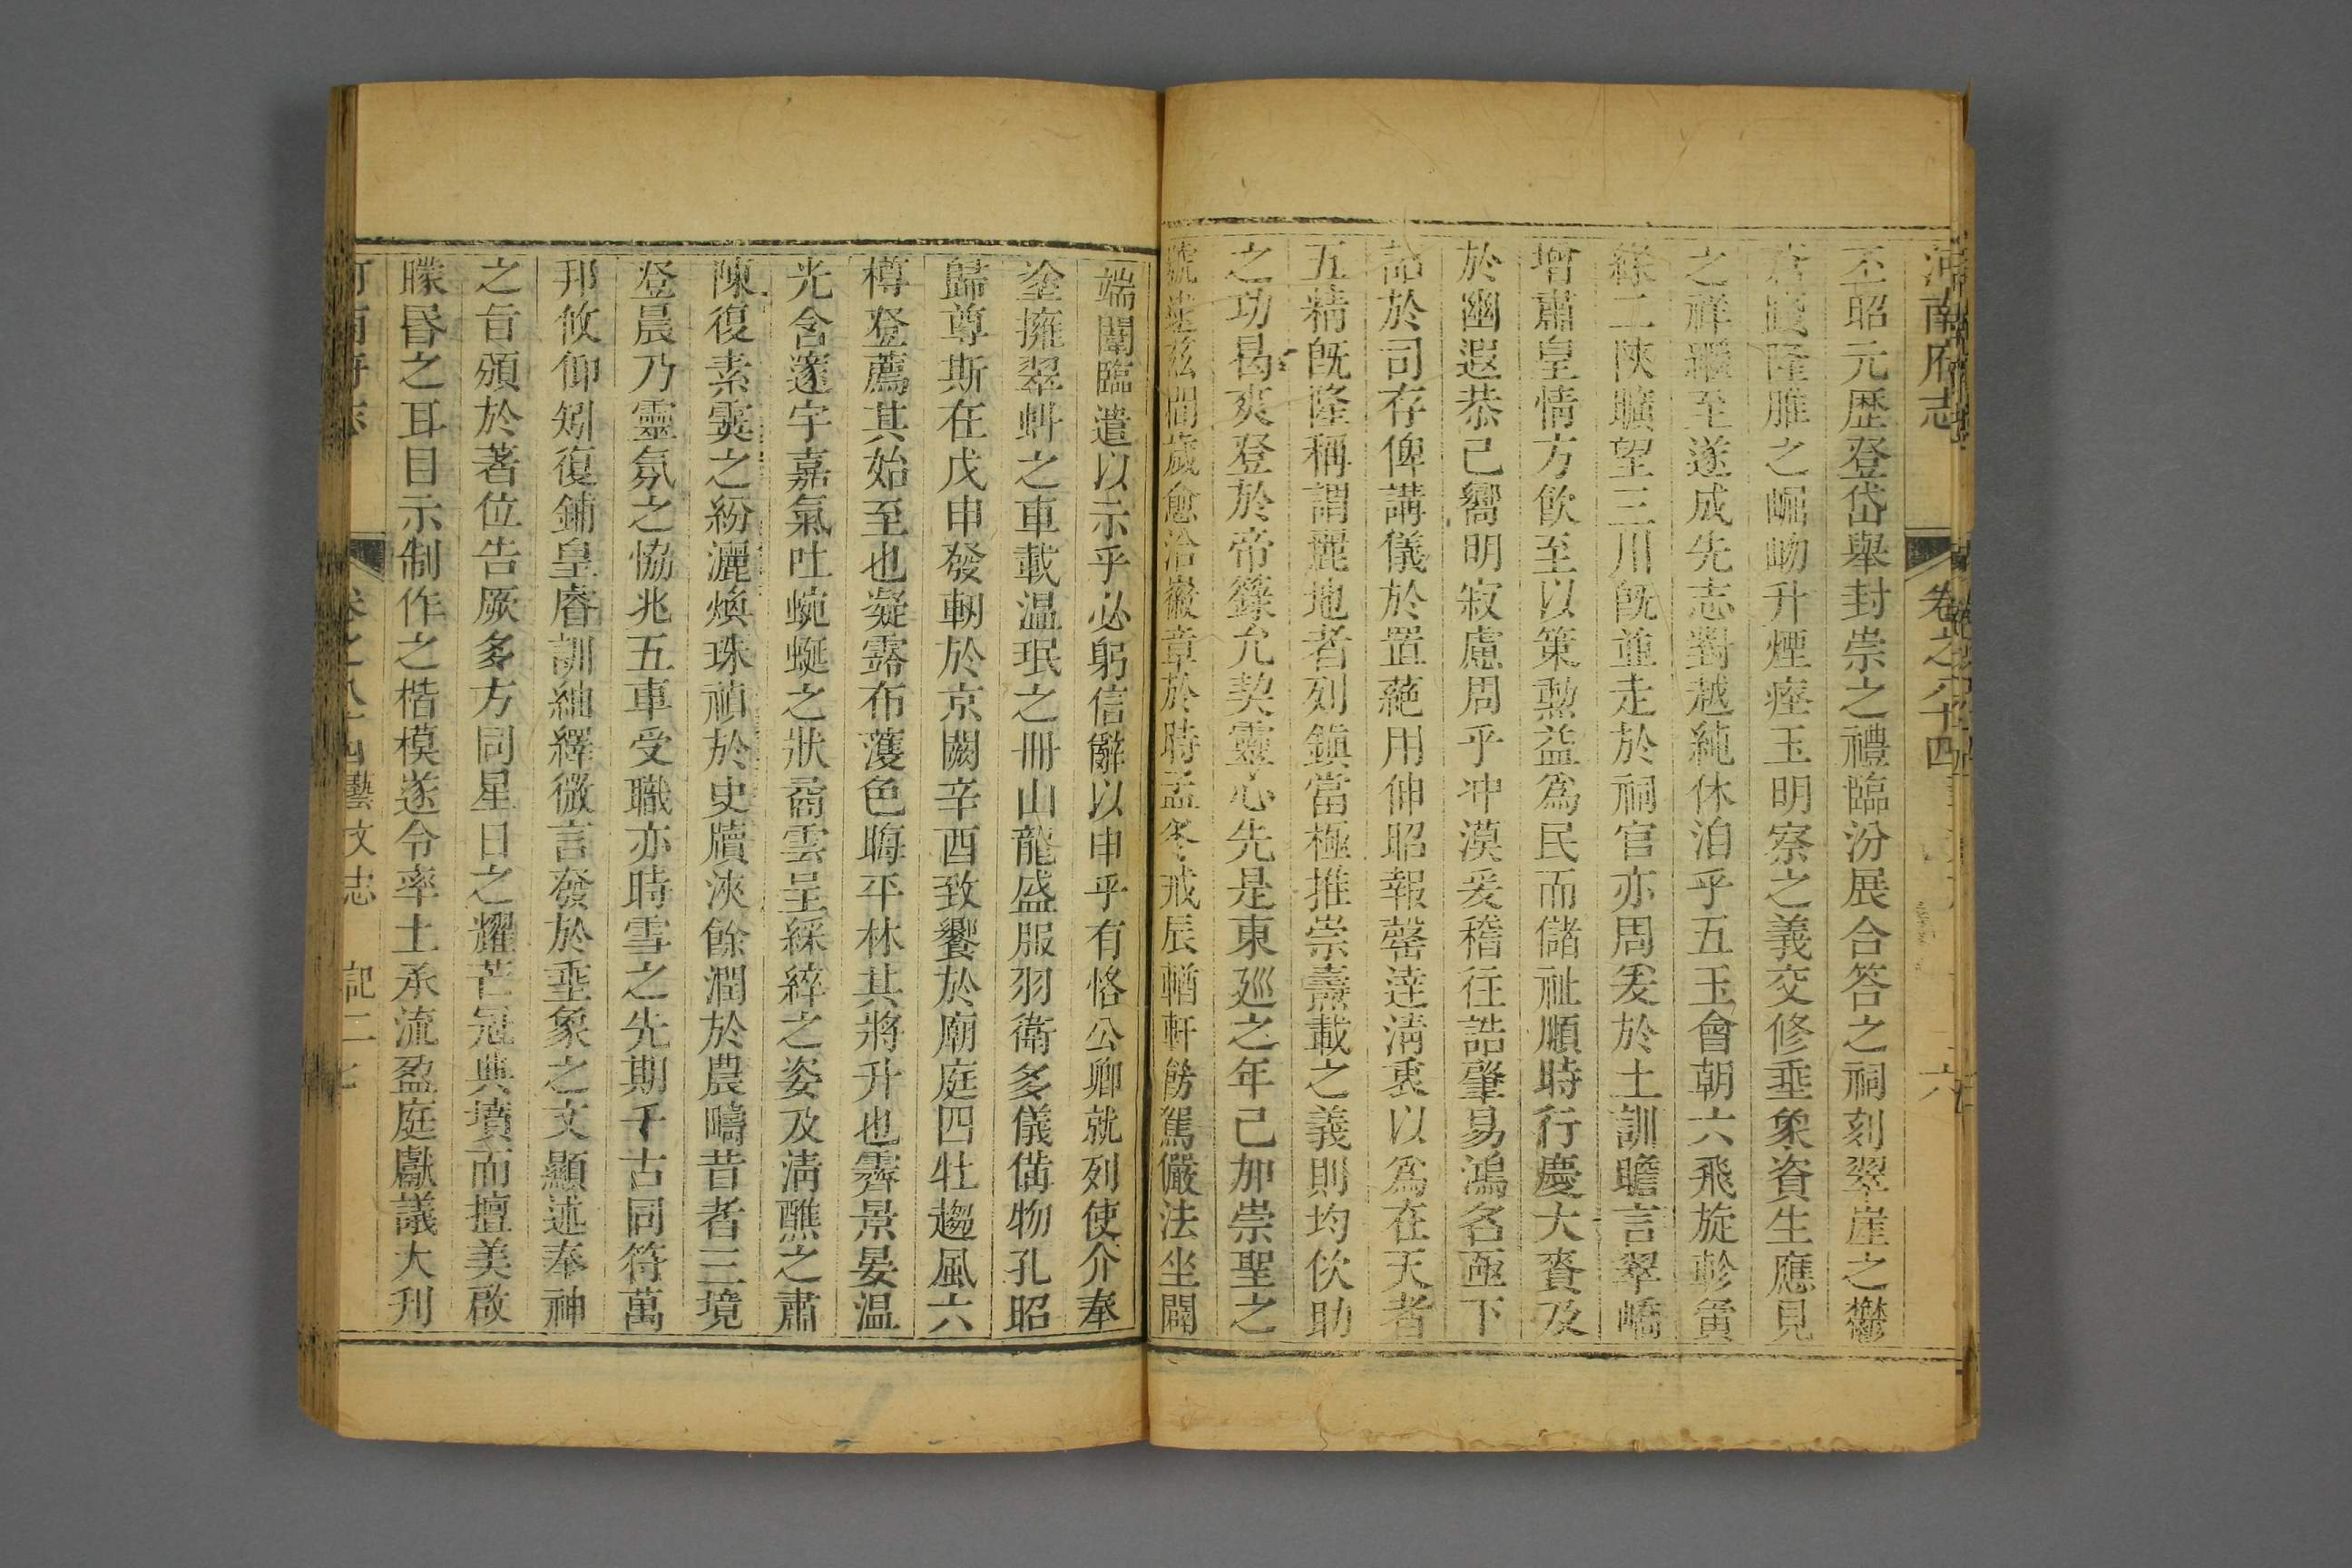 河南府志 卷之八十四 六
丕昭元歴登岱舉封崇之禮臨汾展合答之祠刻翠崖之欝
隆脽之崛岉升煙瘞玉明察之義交修垂象資生應見
之祥繼至遂成先志對越純休洎乎五玉會朝六飛旋軫黃
緱二陝曠望三川旣並走於祠官亦周爰於土訓瞻言翠嶠
增肅皇情方飲至以策勲益爲民而儲祉順時行慶大賚及
於幽遐恭己嚮明寂慮周乎冲漠爰稽往誥肇易鴻名亟下
詔於司存俾講儀於置蕝用伸昭報罄達淸衷以爲在天者
五精旣隆稱謂麗地者列鎭當極推崇燾載之義則均佽助
之功曷爽登於帝籙允契靈心先是東廵之年己加崇聖之
號逮茲間歲愈洽徽章於時孟冬戒辰輶軒飭駕儼法坐闢
端闈臨遣以示乎必躬信辭以申乎有恪公卿就列使介奉
塗擁翠蚪之車載温珉之冊山龍盛服羽衛多儀備物孔昭
歸尊斯在戊申發軔於京闕辛酉致饗於廟庭四牡趨風六
樽登薦其始至也凝霧布濩色晦平林其將升也霽景晏温
光含邃宇嘉氣吐蜿蜒之狀矞雲呈綵縡之姿及淸醮之肅
陳復素霙之紛灑煥珠禎於史牘浹餘潤於農疇昔者三境
登晨乃靈氛之恊兆五車受職亦時雪之先期千古同符萬
邦攸仰矧復鋪皇睿訓紬繹微言發於垂象之文顯述奉神
之旨頒於著位告厥多方同星日之耀芒冠典墳而擅美啟
矇昬之耳目示制作之楷模遂令率土承流盈庭獻議大刋
河南府志 卷之八十四藝文志 記二七